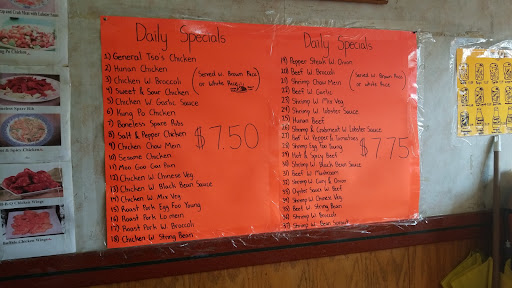 Daily Specials
1) General Tso's Chicken
2) Hunan Chicken
3) Chicken W. Broccoli
4) Sweet & Sour Chicken
5) Chicken W. Garlic Sauce
6) Kung Po Chicken
7) Boneless Spare Ribs
8) Salt & Pepper Chicken
9) Chicken Chow Mein
10) Sesame Chicken
11) Moo Goo Gai Pan
12) Chicken W. Chinese Veg
13) Chicken W. Black Bean Sauce
14) Chicken W. Mix Veg
15) Roast Pork Egg Foo Young
16) Roast Pork Lo mein
17) Roast Pork W. Broccoli
18) Chicken W. String Bean
(Served w. Brown Rice
or White Rice)
$7.50
Daily Specials
19) Pepper Steak W. Onion
20) Beef W. Broccoli
21) Shrimp Chow Mein
22) Beef W. Garlic
23) Shrimp W. Mix Veg
24) Shrimp W. Lobster Sauce
25) Hunan Beef
26) Shrimp & Crabmeat W. Lobster Sauce
27) Beef W. Pepper & Tomatoes
28) Shrimp Egg Foo Young
29) Hot & Spicy Beef
30) Shrimp W. Black Bean Sauce
31) Beef W. Mushroom
32) Shrimp W. Curry & Onion
33) Oyster Sauce W. Beef
34) Shrimp W. Chinese Veg
35) Beef W. String Bean
36) Shrimp W. Broccoli
37) Shrimp W. Bean Sprout
(Served w. Brown Rice
or white Rice)
$7.75